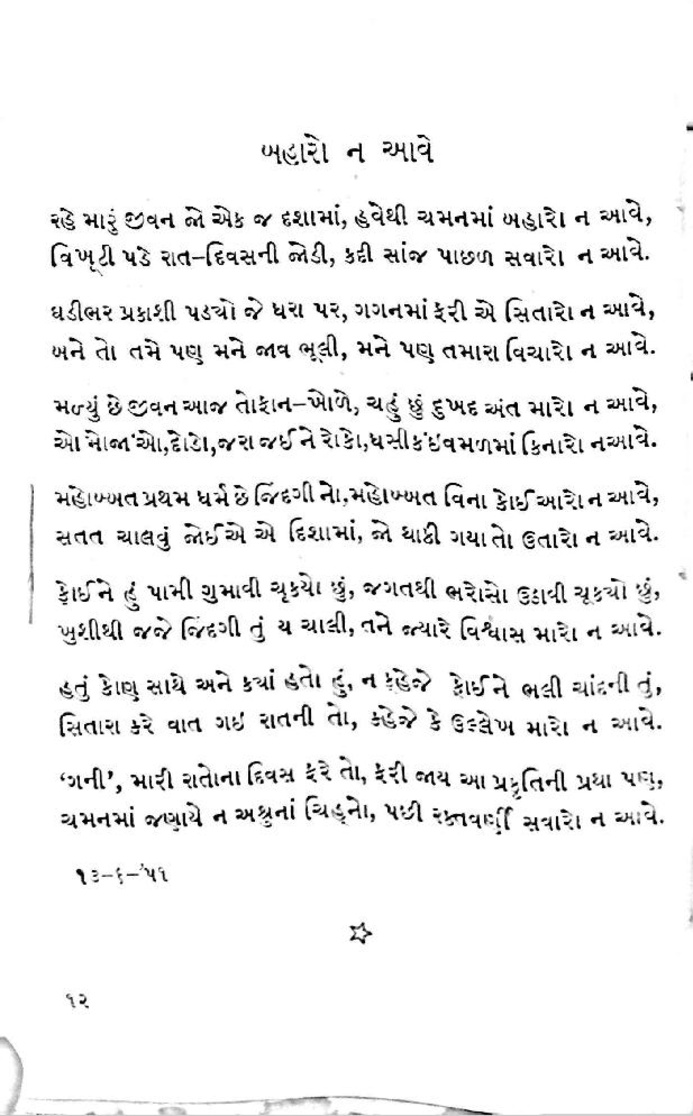 બહારો ન આવે
રહે મારું જીવન જો એક જ દશામાં, હવેથી ચમનમાં બહારો ન આવે,
વિખૂટી પડે રાત–દિવસની જોડી, કદી સાંજ પાછળ સવારો ન આવે.
ઘડીભર પ્રકાશી પડ્યો જે ધરા પર, ગગનમાં ફરી એ સિતારો ન આવે,
બને તો તમે પણ મને જાવ ભૂલી, મને પણ તમારા વિચારો ન આવે.
મળ્યું છે જીવન આજ તોફાન–ખોળે, ચહું છું દુખદ અંત મારો ન આવે,
ઓ મોજાંઓ, દોડો, જરા જઈને રોકો, ધસી કંઇ વમળમાં કિનારો ન આવે.
મહોબ્બત પ્રથમ ધર્મ છે જિંદગીનો, મહોબ્બત વિના કોઈ આરો ન આવે,
સતત ચાલવું જોઈએ એ દિશામાં, જો થાકી ગયા તો ઉતારો ન આવે.
કોઈને હું પામી ગુમાવી ચૂક્યો છું, જગતથી ભરોસો ઉઠાવી ચૂક્યો છું,
ખુશીથી જજે જિંદગી તું ય ચાલી, તને જ્યારે વિશ્વાસ મારો ન આવે.
હતું કોણ સાથે અને ક્યાં હતો હું, ન કહેજે કોઈને ભલી ચાંદની તું,
સિતારા કરે વાત ગઇ રાતની તો, કહેજે કે ઉલ્લેખ મારો ન આવે.
‘ગની’, મારી રાતોના દિવસ ફરે તો, ફરી જાય આ પ્રકૃતિની પ્રથા પણ,
ચમનમાં જણાયે ન અશ્રુનાં ચિહ્નો, પછી રક્તવર્ણી સવારો ન આવે.
૧૩–૬–’૫૧
૧૨